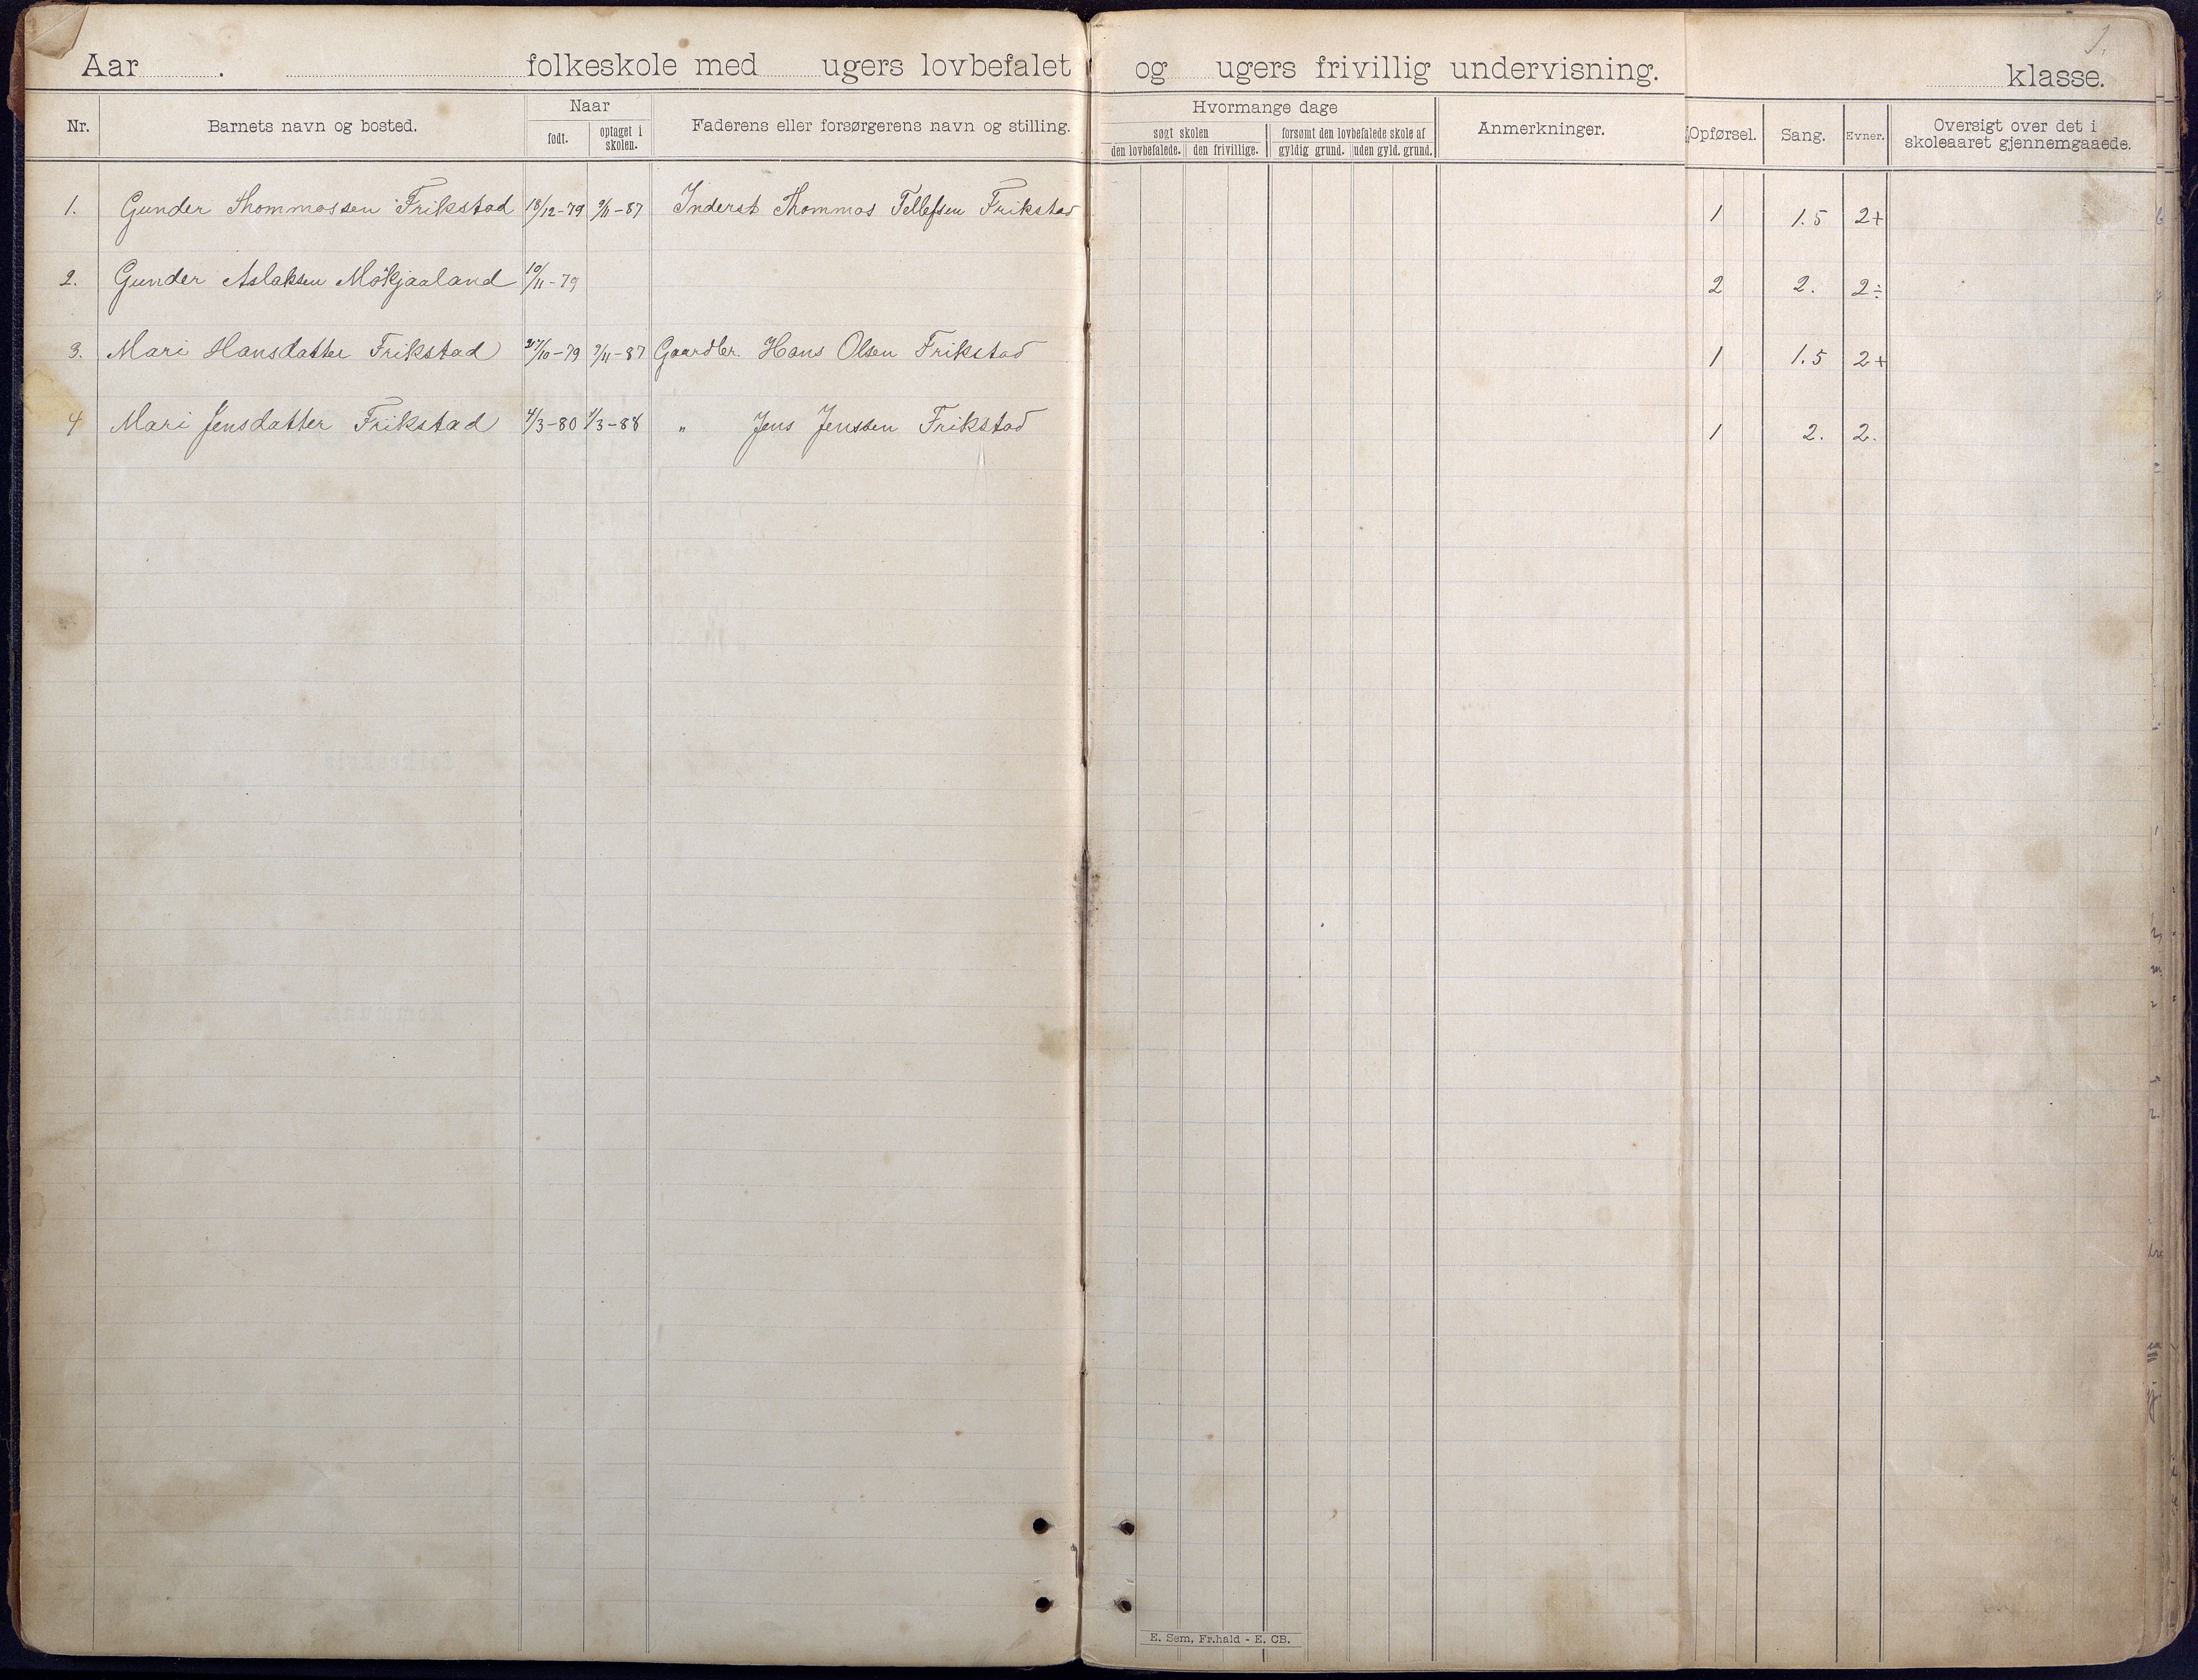 1.
Aar . folkeskole med ugers lovbefalet og ugers frivillig undervisning. klasse.
Nr. Barnets navn og bosted. Naar født. optaget i skolen. Faderens eller forsørgerens navn og stilling. Hvormange dage søgt skolen den lovbefalede. den frivillige. forsømt den lovbefalede skole af gyldig grund. uden gyld. grund. Anmerkninger. Opførsel. Sang. Evner. Oversigt over det i skoleaaret gjennemgaaede.
1. Gunder Thommassen Frikstad 18/12-79 9/11-87 Inderst Thommas Tellefsen Frikstad 1 1.5 2+
2. Gunder Aslaksen Mökjaaland 10/11-79 2 2. 2÷
3. Mari Hansdatter Frikstad 27/10-79 9/11-87 Gaardbr. Hans Olsen Frikstad 1 1.5 2+
4 Mari Jensdatter Frikstad 4/3-80 1/3-88 " Jens Jenssen Frikstad 1 2. 2.
E. Sem, Fr.hald - E. CB.